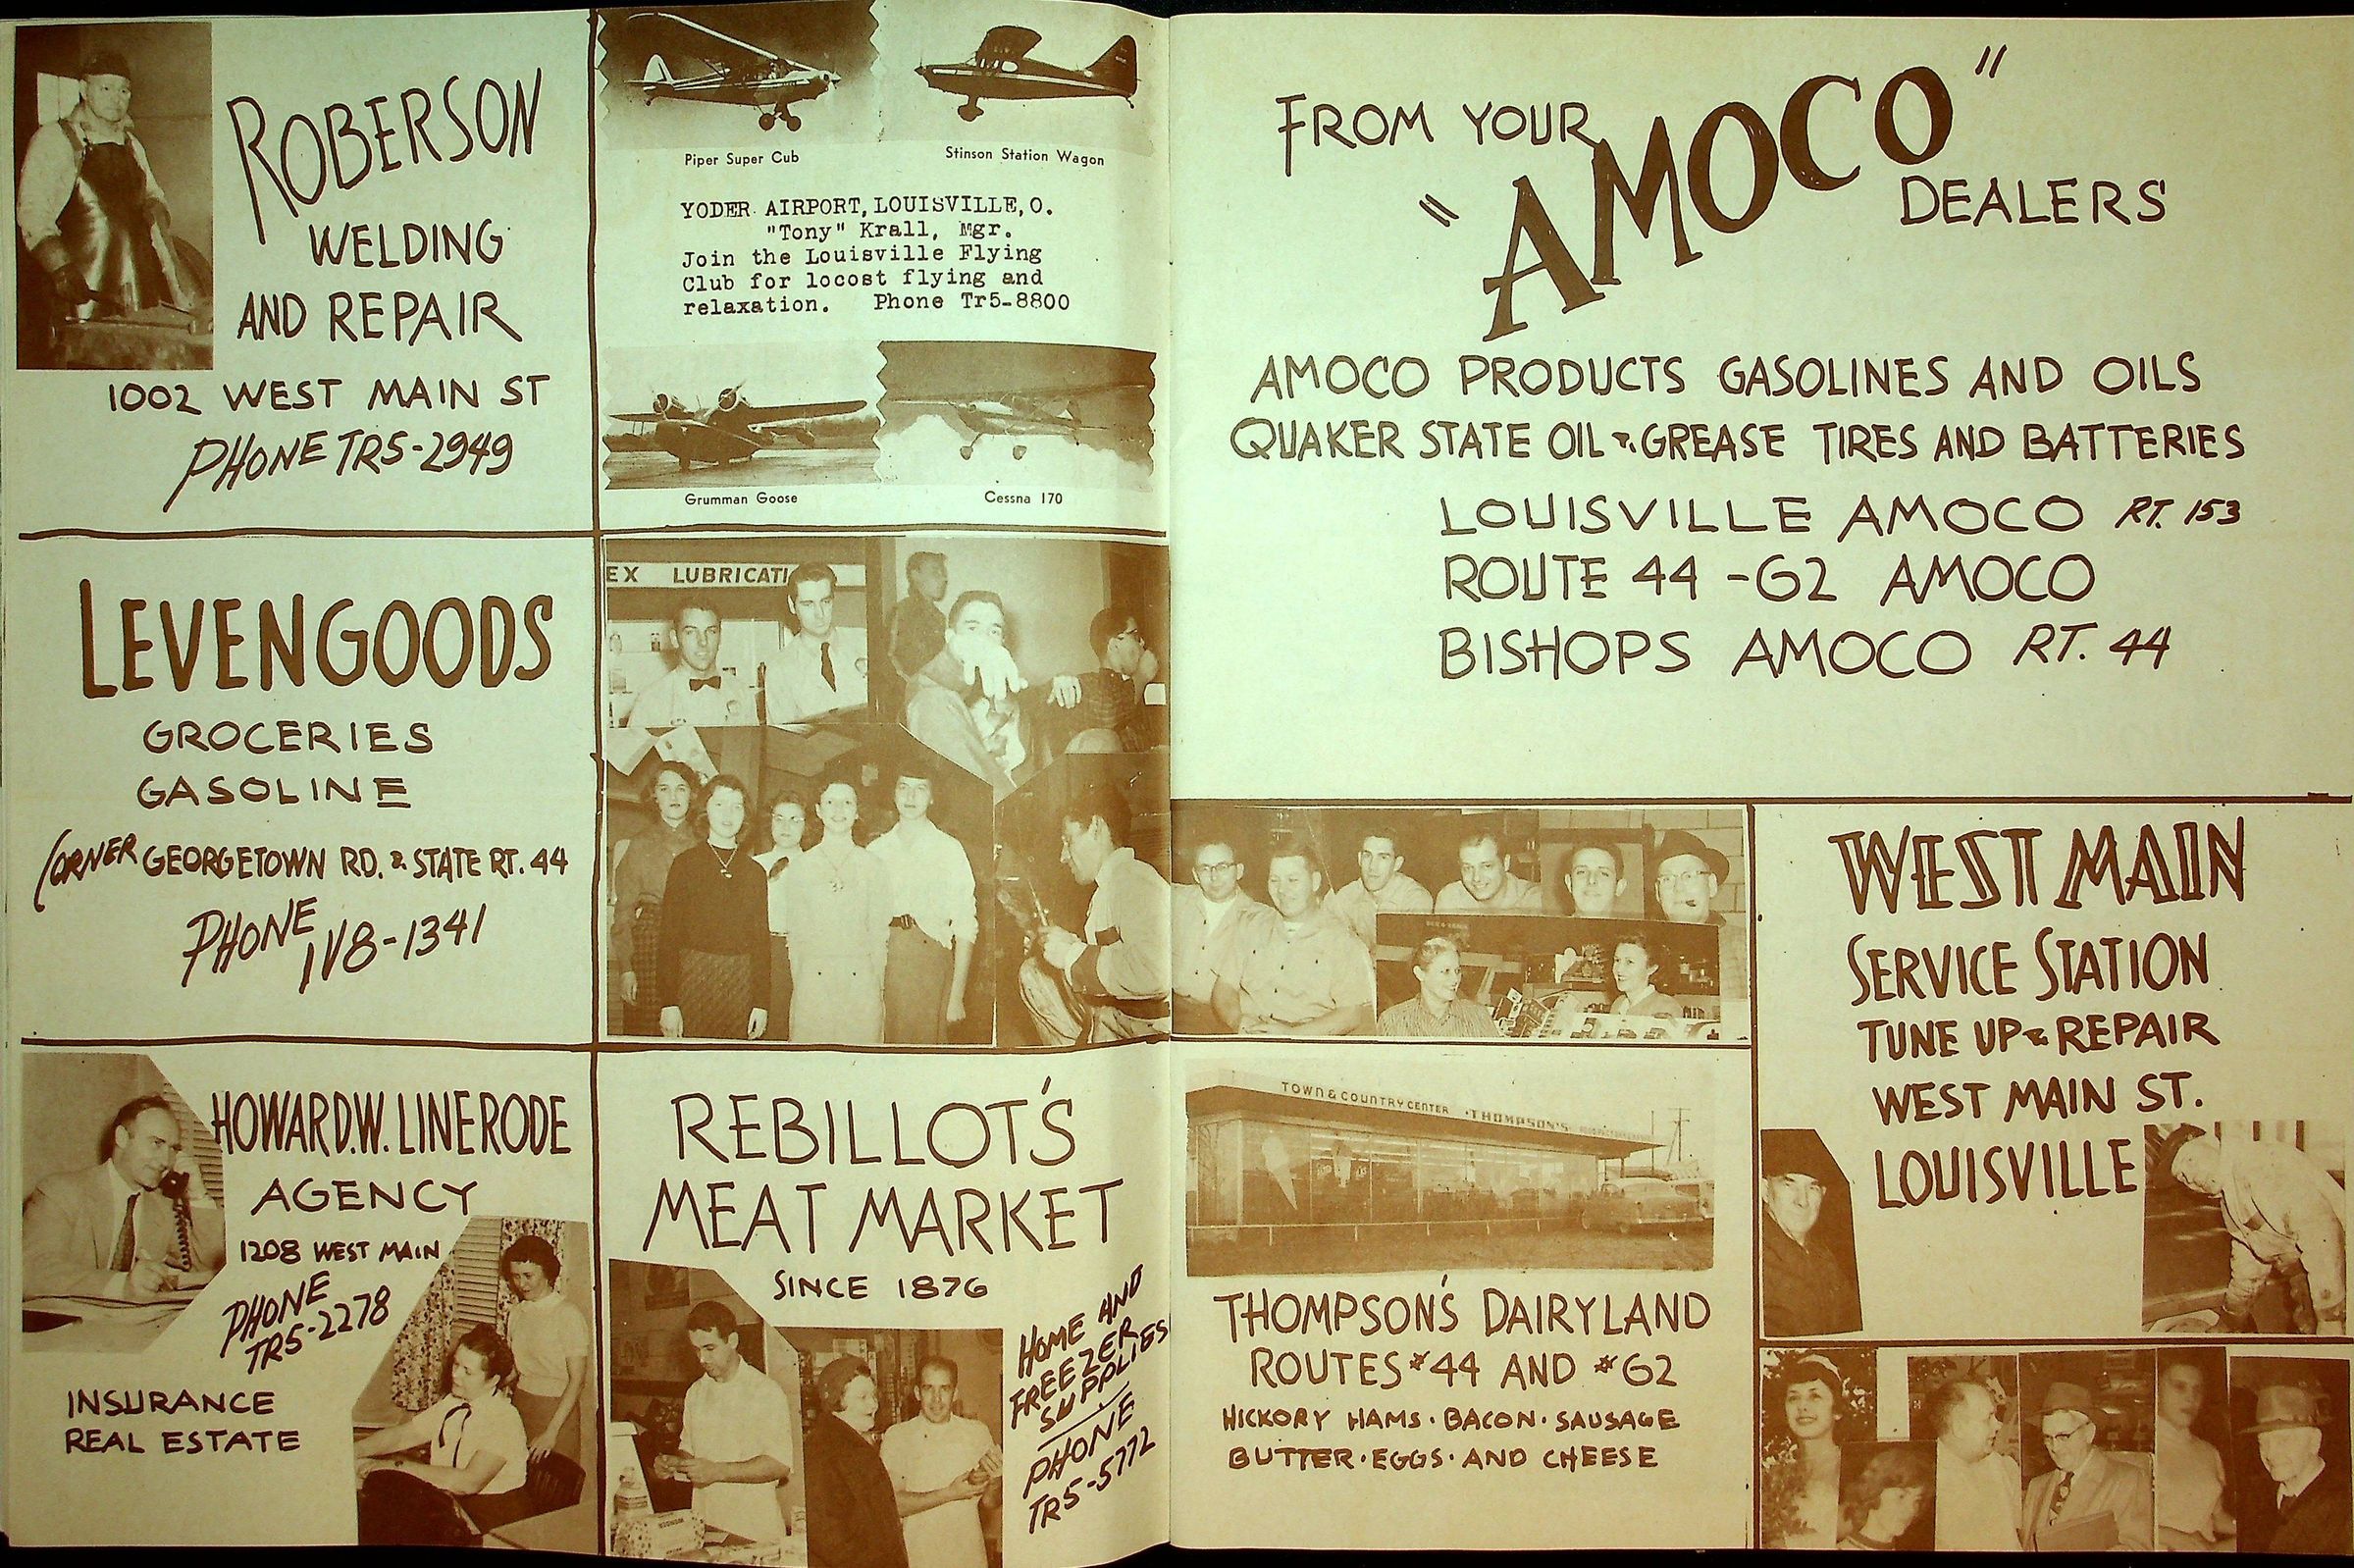 ROBERSON
WELDING
AND REPAIR
1002 WEST MAIN ST
PHONE TR5-2949
Piper Super Cub
Stinson Station Wagon
YODER AIRPORT, LOUISVILLE, O.
"Tony" Krall, Mgr.
Join the Louisville Flying
Club for locost flying and
relaxation. Phone Tr5-8800
Grumman Goose
Cessna 170
FROM YOUR
"AMOCO"
DEALERS
AMOCO PRODUCTS GASOLINES AND OILS
QUAKER STATE OIL & GREASE TIRES AND BATTERIES
LOUISVILLE AMOCO RT. 153
ROUTE 44-62 AMOCO
BISHOPS AMOCO RT. 44
LEVENGOODS
GROCERIES
GASOLINE
CORNER GEORGETOWN RD. & STATE RT. 44
PHONE IV8-1341
EX LUBRICATI
HOWARD.W. LINERODE
AGENCY
1208 WEST MAIN
PHONE
TR5-2278
INSURANCE
REAL ESTATE
REBILLOT'S
MEAT MARKET
SINCE 1876
HOME AND
FREEZER
SUPPLIES
PHONE
TR5-5772
TOWN & COUNTRY CENTER · THOMPSON'S
THOMPSON'S DAIRYLAND
ROUTES #44 AND #62
HICKORY HAMS · BACON · SAUSAGE
BUTTER · EGGS · AND CHEESE
WEST MAIN
SERVICE STATION
TUNE UP & REPAIR
WEST MAIN ST.
LOUISVILLE